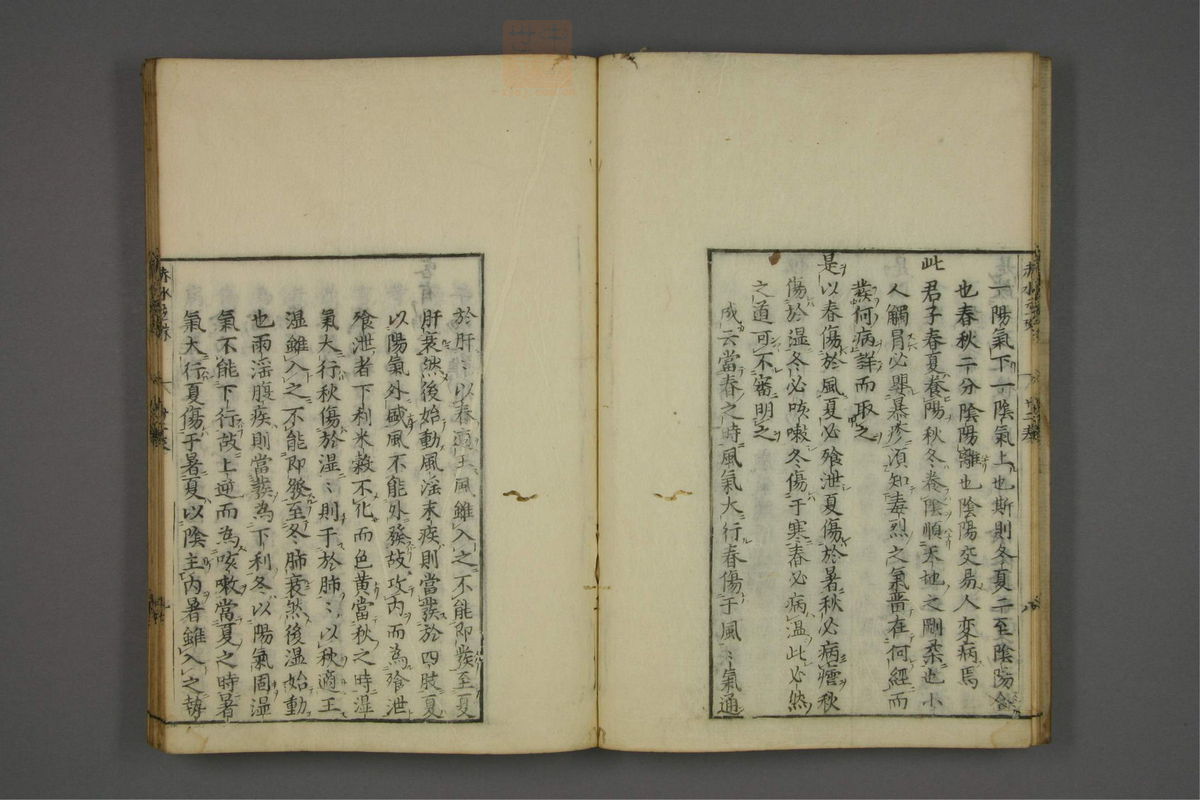 一陽氣下一陰氣上也斯則冬夏二至陰陽合
也春秋二分陰陽離也陰陽交易人変病焉
此君子春夏養陽秋冬養陰順天地之剛柔也小
人觸冒必罹暴疹湏知毒烈之氣畱在何經而
𤼲何病詳而取之
是以春傷於風夏必飱泄夏傷於暑秋必病瘧秋
傷於湿冬必咳嗽冬傷于寒春必病温此必然
之道可不審明之
成云當春之時風氣大行春傷于風〻氣通
於肝〻以春適王風雖入之不能即𤼲至夏
肝衰然後始動風淫末疾則當𤼲於四肢夏
以陽氣外盛風不能外𤼲故攻内而為飱泄
飱泄者下利米穀不化而色黄當秋之時湿
氣大行秋傷於湿〻則干於肺〻以秋適王
湿雖入之不能即發至冬肺衰然後湿始動
也雨淫腹疾則當𤼲為下利冬以陽氣固湿
氣不能下行故上逆而為咳嗽當夏之時暑
氣大行夏傷于暑夏以陰主内暑雖入之勢
赤水玄珠